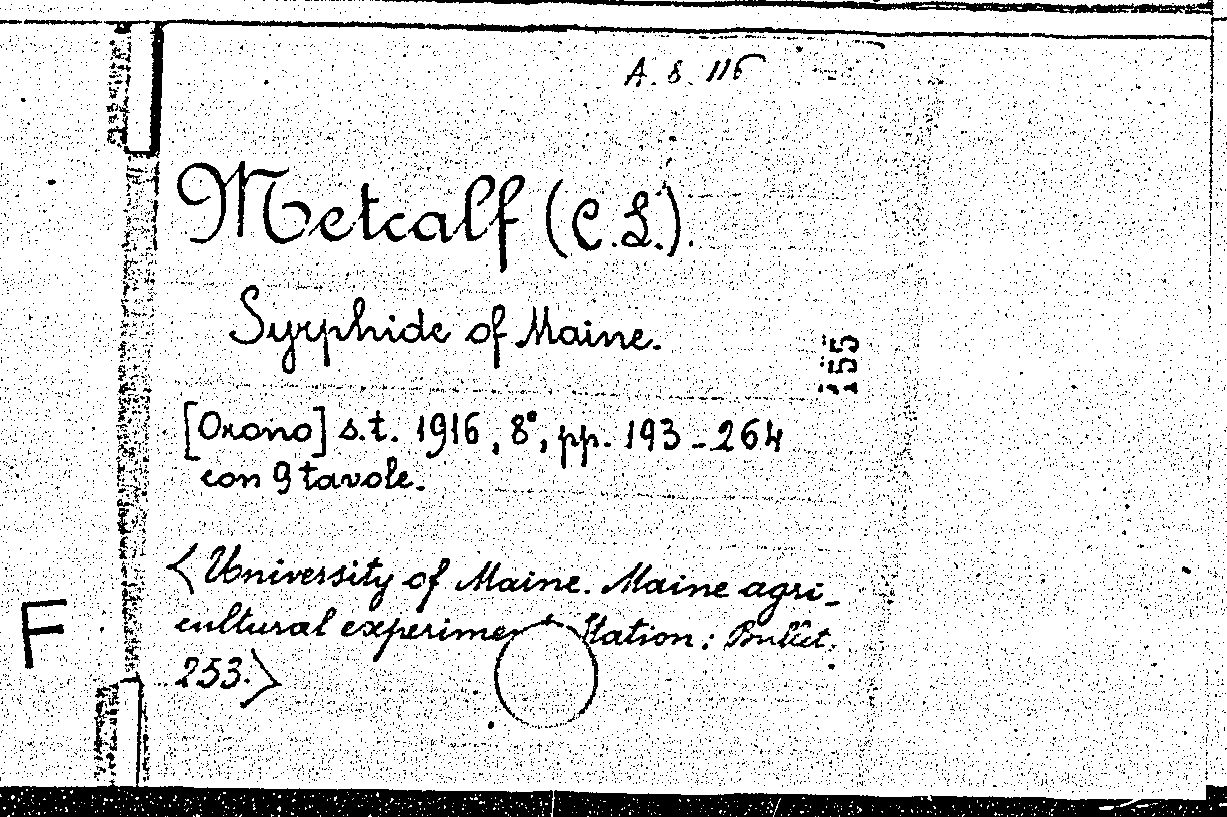 A. 8. 116
Metcalf (C.L.).
Syrphide of Maine.
155
[Orono] s.t. 1916, 8°, pp. 193-264
con 9 tavole.
<University of Maine. Maine agri-
cultural experime tation: Bullet.
253.>
F